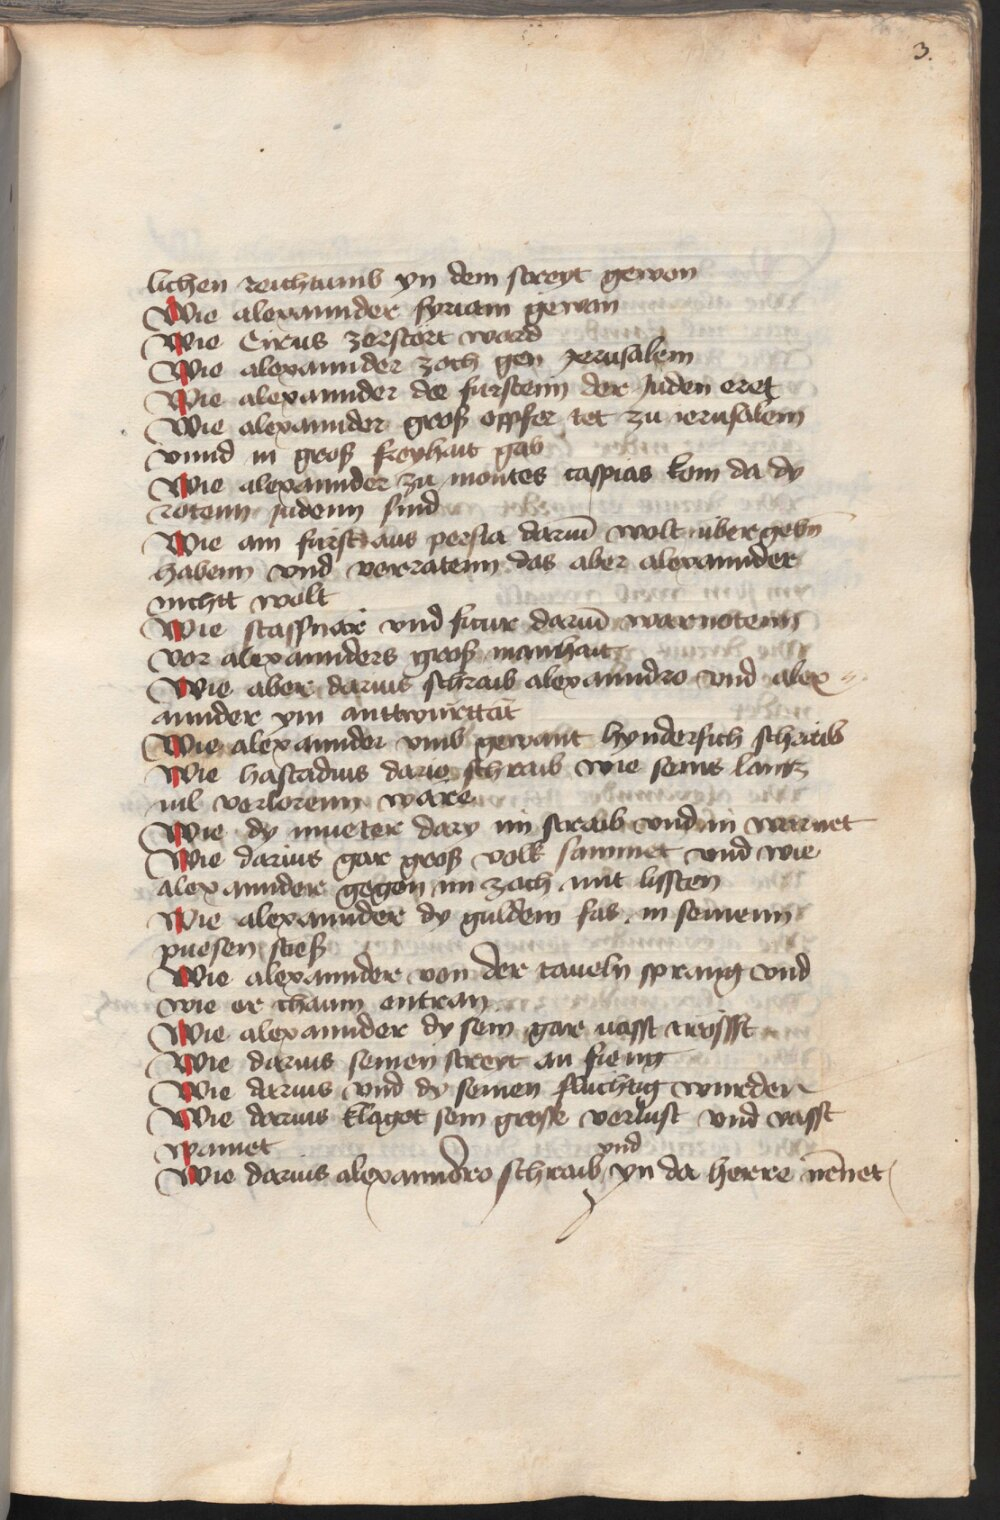 3.
lichen reichtumb yn dem streyt gewon
Wie alexannder syriam gewan
Wie Cirus zerstört ward
Wie alexannder zoch gen Jerusalem
Wie alexannder die furstenn der Juden eret
Wie alexannder groß opffer tet zu ierusalem
vnnd in groß freyhait gab
Wie alexannder zu montes caspias kom da dy
rotenn Judenn sind
Wie ain fürst aus persia dariū wolt übergebn̄
habenn vnd verratenn das aber alexannder
nichtt wolt
Wie staffnor vnd fictur dariū warnotenn
vor alexannders groß manhait
Wie aber darius schraib alexanndro vnd alex
annder ym anttwurttat
Wie alexannder vmb gewant hyndersich schraib
Wie hastadius dario schraib wie seins lantz
uil verlorenn wäre
Wie dy mueter dary im scraib vnd in warnet
Wie darius gar groß volk sammet vnd wie
alexannder gegen im zoch mit lissten
Wie alexannder dy guldein fas in seinenn
puesen stieß
Wie alexannder von der taueln sprang vnd
wie er chaum entran
Wie alexannder dy sein gar uasst trössst
Wie darius seinen streyt an fieng
Wie darius vnd dy seinen fluchtig wurden
Wie darius klaget sein grosse verlust vnd vasst
wainet
Wie darius alexanndro schraib vnd yn da herre nēnet